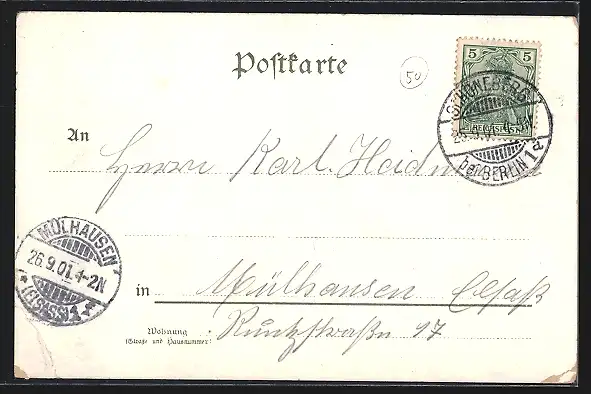 Postkarte
50
5 5
REICHSPOST
SCHÖNEBERG
25.9.01
bei BERLIN 1 a
An
Herrn Karl Heidm
MÜLHAUSEN
26.9.01. 1-2N
(ELSASS) 1
in Mülhausen Elsaß
Wohnung
(Straße und Hausnummer)
straße 17